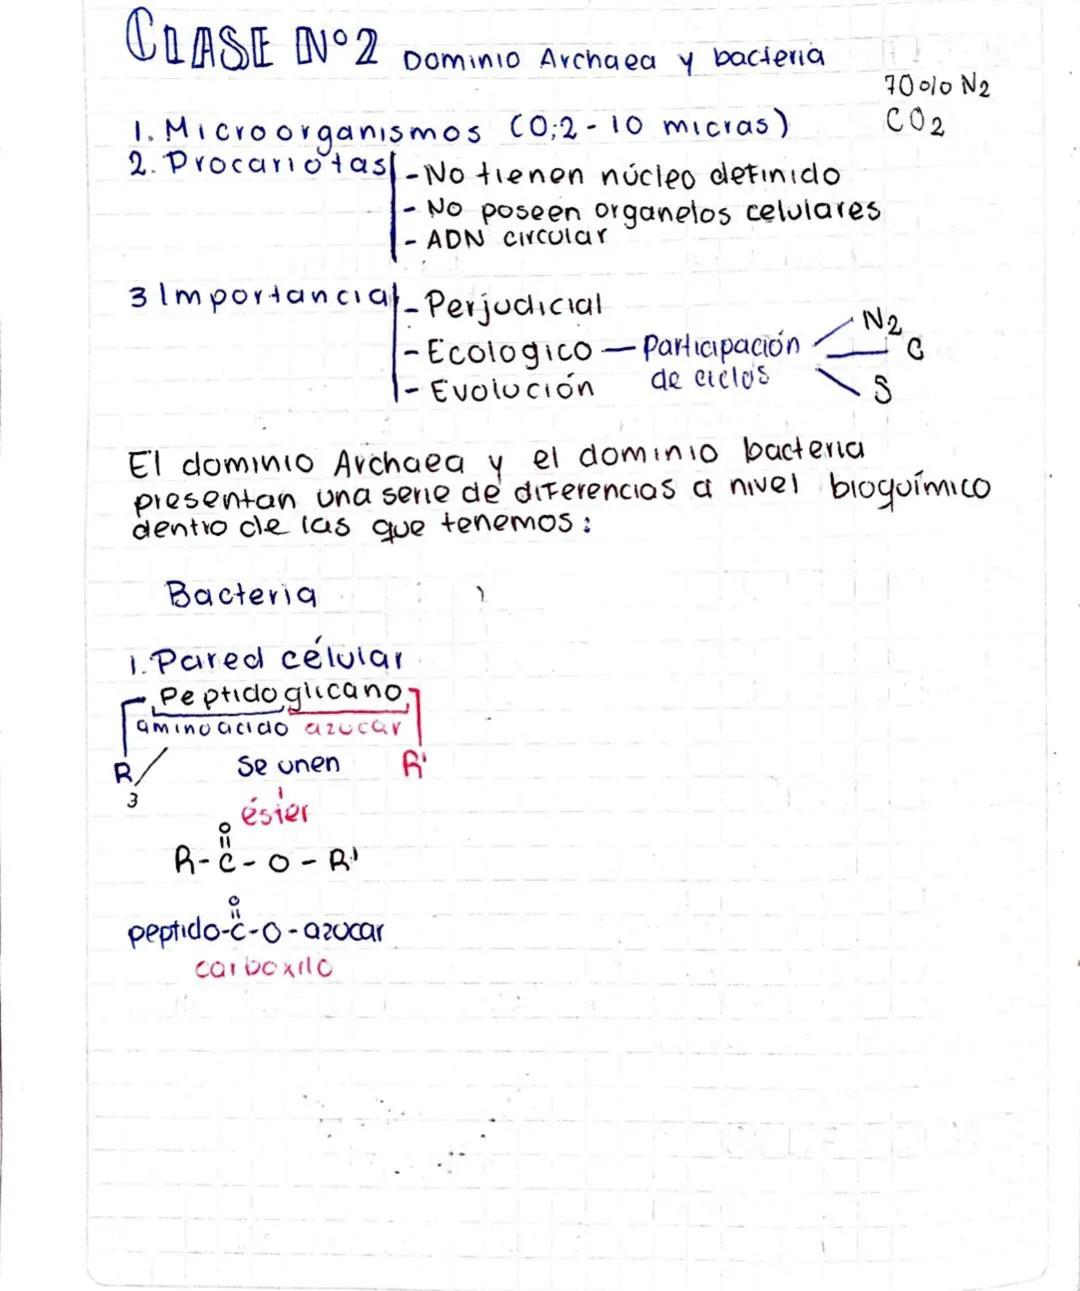 CLASE Nº2 Dominio Archaea y bacteria
70% N2
CO2
1. Microorganismos (0;2-10 micras)
2. Procariotas - No tienen núcleo definido
- No poseen organelos celulares
- ADN circular
3 Importancia - Perjudicial
- Ecologico - Participación de ciclos N2 C S
- Evolución
El dominio Archaea y el dominio bacteria
presentan una serie de diferencias a nivel bioquímico
dentro de las que tenemos:
Bacteria
1. Pared célular
Peptidoglicano
aminoacido azucar
R Se unen R'
3
éster
O
R-C-O-R'
O
peptido-C-O-azucar
carboxilo